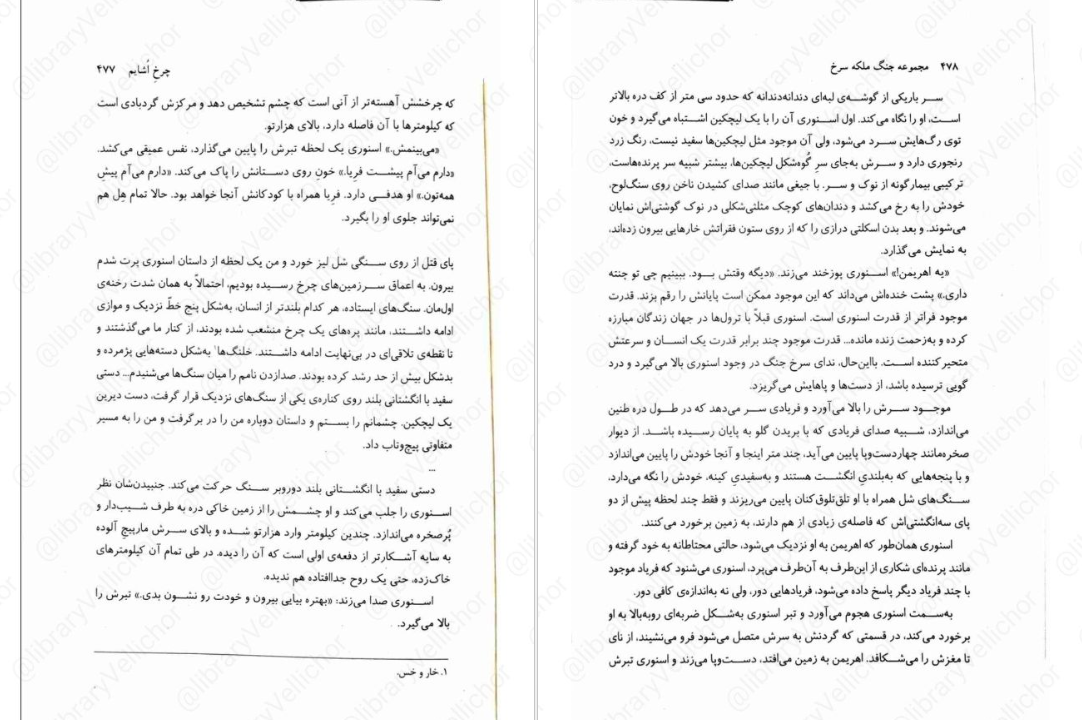 چرخ اُشایم ۴۷۷
که چرخشش آهسته‌تر از آنی است که چشم تشخیص دهد و مرکزش گردبادی است
که کیلومترها با آن فاصله دارد، بالای هزارتو.
«می‌بینمش.» اسنوری یک لحظه تبرش را پایین می‌گذارد، نفس عمیقی می‌کشد.
«دارم می‌آم پیشت فریا.» خونِ روی دستانش را پاک می‌کند. «دارم می‌آم پیش
همه‌تون.» او هدفی دارد. فریا همراه با کودکانش آنجا خواهد بود. حالا تمام هِل هم
نمی‌تواند جلوی او را بگیرد.
پای قتل از روی سنگی شل لیز خورد و من یک لحظه از داستان اسنوری پرت شدم
بیرون. به اعماق سرزمین‌های چرخ رسیده بودیم، احتمالاً به همان شدت رخنه‌ی
اول‌مان. سنگ‌های ایستاده، هر کدام بلندتر از انسان، به‌شکل پنج خطّ نزدیک و موازی
ادامه داشتند، مانند پره‌های یک چرخ منشعب شده بودند، از کنار ما می‌گذشتند و
تا نقطه‌ی تلاقی‌ای در بی‌نهایت ادامه داشتند. خلنگ‌ها۱ به‌شکل دسته‌هایی پژمرده و
بدشکل بیش از حد رشد کرده بودند. صدازدن نامم را میان سنگ‌ها می‌شنیدم... دستی
سفید با انگشتانی بلند روی کناره‌ی یکی از سنگ‌های نزدیک قرار گرفت، دست دیرین
یک لیچکین. چشمانم را بستم و داستان دوباره من را در بر گرفت و من را به مسیر
متفاوتی پیچ‌وتاب داد.
...
دستی سفید با انگشتانی بلند دوروبر سنگ حرکت می‌کند. جنبیدن‌شان نظر
اسنوری را جلب می‌کند و او چشمش را از زمین خاکی دره به طرف شیب‌دار و
پُرصخره می‌اندازد. چندین کیلومتر وارد هزارتو شده و بالای سرش مارپیچ آلوده
به سایه آشکارتر از دفعه‌ی اولی است که آن را دیده. در طی تمام آن کیلومترهای
خاک‌زده، حتی یک روح جداافتاده هم ندیده.
اسنوری صدا می‌زند: «بهتره بیایی بیرون و خودت رو نشون بدی.» تبرش را
بالا می‌گیرد.
۱. خار و خس.
۴۷۸ مجموعه جنگ ملکه سرخ
سر باریکی از گوشه‌ی لبه‌ای دندانه‌دندانه که حدود سی متر از کف دره بالاتر
است، او را نگاه می‌کند. اول اسنوری آن را با یک لیچکین اشتباه می‌گیرد و خون
توی رگ‌هایش سرد می‌شود، ولی آن موجود مثل لیچکین‌ها سفید نیست، رنگ زرد
رنجوری دارد و سرش به‌جای سرِ گُوِه‌شکل لیچکین‌ها، بیشتر شبیه سر پرنده‌هاست،
ترکیبی بیمارگونه از نوک و سر. با جیغی مانند صدای کشیدن ناخن روی سنگ‌لوح،
خودش را به رخ می‌کشد و دندان‌های کوچک مثلثی‌شکلی در نوک گوشتی‌اش نمایان
می‌شوند. و بعد بدن اسکلتی درازی را که از روی ستون فقراتش خارهایی بیرون زده‌اند،
به نمایش می‌گذارد.
«یه اهریمن!» اسنوری پوزخند می‌زند. «دیگه وقتش بود. ببینیم چی تو چنته
داری.» پشت خنده‌اش می‌داند که این موجود ممکن است پایانش را رقم بزند. قدرت
موجود فراتر از قدرت اسنوری است. اسنوری قبلاً با ترول‌ها در جهان زندگان مبارزه
کرده و به‌زحمت زنده مانده... قدرت موجود چند برابر قدرت یک انسان و سرعتش
متحیرکننده است. بااین‌حال، ندای سرخ جنگ در وجود اسنوری بالا می‌گیرد و درد
گویی ترسیده باشد، از دست‌ها و پاهایش می‌گریزد.
موجود سرش را بالا می‌آورد و فریادی سر می‌دهد که در طول دره طنین
می‌اندازد، شبیه صدای فریادی که با بریدن گلو به پایان رسیده باشد. از دیوار
صخره‌مانند چهاردست‌وپا پایین می‌آید، چند متر اینجا و آنجا خودش را پایین می‌اندازد
و با پنجه‌هایی که به‌بلندیِ انگشت هستند و به‌سفیدیِ کینه، خودش را نگه می‌دارد،
سنگ‌های شل همراه با او تلق‌تلوق‌کنان پایین می‌ریزند و فقط چند لحظه پیش از دو
پای سه‌انگشتی‌اش که فاصله‌ی زیادی از هم دارند، به زمین برخورد می‌کنند.
اسنوری همان‌طور که اهریمن به او نزدیک می‌شود، حالتی محتاطانه به خود گرفته و
مانند پرنده‌ای شکاری از این‌طرف به آن‌طرف می‌پرد، اسنوری می‌شنود که فریاد موجود
با چند فریاد دیگر پاسخ داده می‌شود، فریادهایی دور، ولی نه به‌اندازه‌ی کافی دور.
به‌سمت اسنوری هجوم می‌آورد و تبر اسنوری به‌شکل ضربه‌ای روبه‌بالا به او
برخورد می‌کند، در قسمتی که گردنش به سرش متصل می‌شود فرو می‌نشیند، از نای
تا مغزش را می‌شکافد. اهریمن به زمین می‌افتد، دست‌وپا می‌زند و اسنوری تبرش
@libraryVellichor